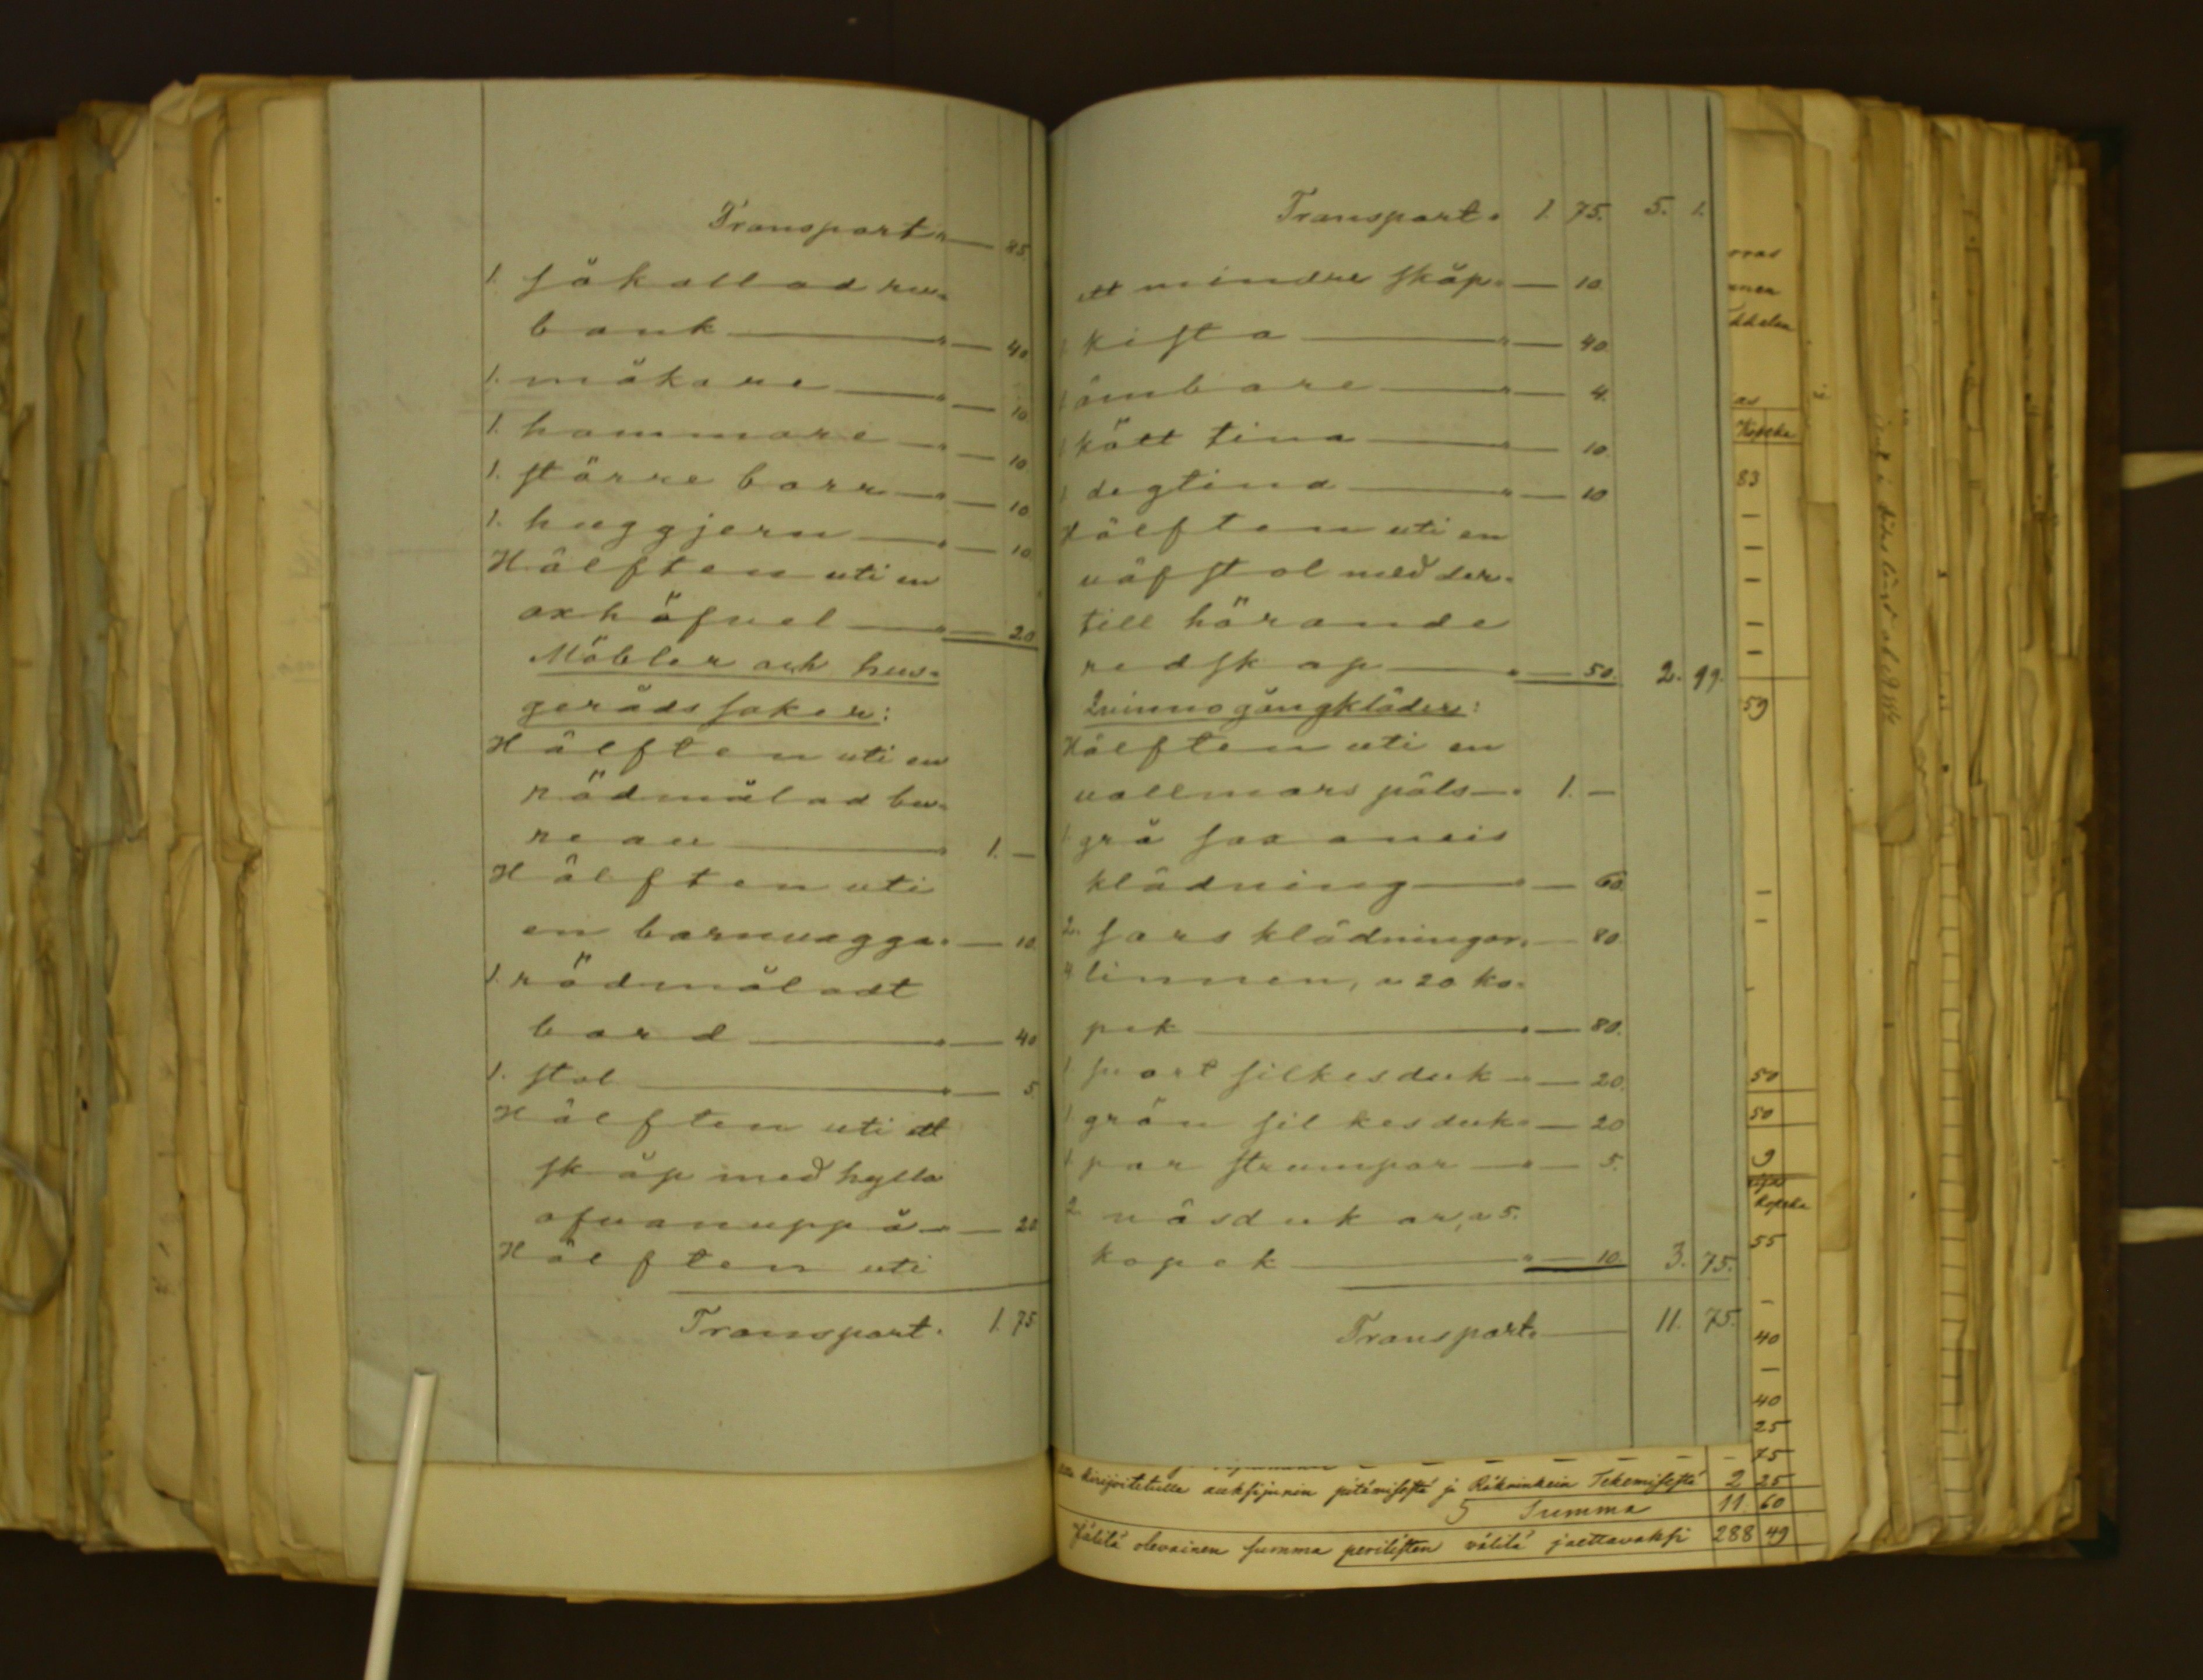 Transport " — 85
1. såkallad ru=
bank — " — 40
1. måkare — " — 10
1. hammare — " — 10
1. större borr — " — 10
1. huggjern — " — 10
Hälften uti en
oxhöfvel — " — 20
Möbler och hus=
gerådssaker:
Hälften uti en
rödmålad bu=
reau — " 1. —
Hälften uti
en barnvagga " — 10.
1. rödmåladt
bord — " — 40
1. stol — " — 5
Hälften uti ett
skåp med hylla
ofvanuppå — " — 20
Hälften uti
Transport " 1. 75
Transport " 1. 75. 5. 1.
ett mindre skåp " — 10
1 kista — " — 40
1 ämbare — " — 4.
1 kött tina — " — 10.
1 degtina — " — 10
Hälften uti en
väfstol med der=
till hörande
redskap — " — 50. 2. 99.
Qvinnogångkläder:
Hälften uti en
vallmars päls — " 1. —
1. grå
klädning — " — 60.
2. sars klädningar " — 80
4 linnen, a 20 ko=
pek — " — 80.
1 svart silkesduk — " — 20.
1. grön silkesduk " — 20
1. par strumpor — " — 5.
2. näsdukar, a 5.
kopek — " — 10. 3. 75.
Transport " — 11. 75.
Kopeka
83
59
50
50
9
kopeka
55
40
40
25
75
auksjunin pitämisestä ja Räkninkein Tekemisestä 2 25
Summa 11 60
Jälilä olevainen summa perilisten välilä jaettavaksi 288 49